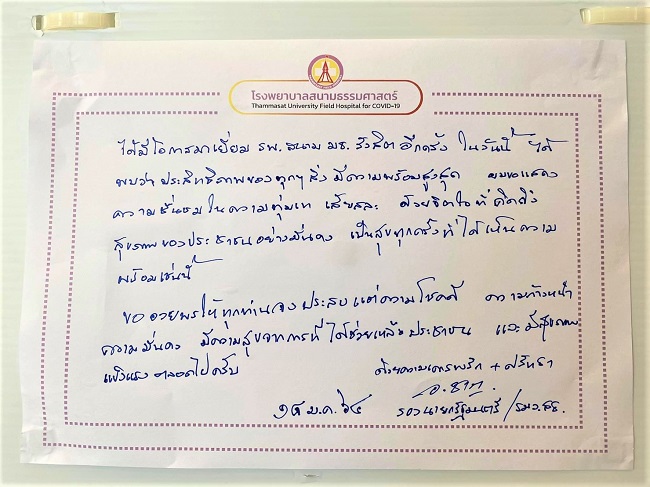 โรงพยาบาลสนามธรรมศาสตร์
Thammasat University Field Hospital for COVID-19
ได้มีโอกาสมาเยี่ยม รพ. สนาม มธ. รังสิต อีกครั้ง ในวันนี้ ได้
พบว่า ประสิทธิภาพของทุกๆ สิ่ง มีความพร้อมสูงสุด ผมขอแสดง
ความชื่นชมในความทุ่มเท เสียสละ ด้วยจิตใจที่คิดถึง
สุขภาพของประชาชนอย่างมั่นคง เป็นสุขทุกครั้งที่ได้เห็นความ
พร้อมเช่นนี้
ขออวยพรให้ทุกท่านจงประสบแต่ความโชคดี ความก้าวหน้า
ความมั่นคง มีความสุขจากการที่ได้ช่วยเหลือประชาชน และมีสุขภาพ
แข็งแรงตลอดไปครับ
ด้วยความเคารพรัก + ศรัทธา
๑๘ ม.ค. ๖๔
รองนายกรัฐมนตรี / รมว.สธ.